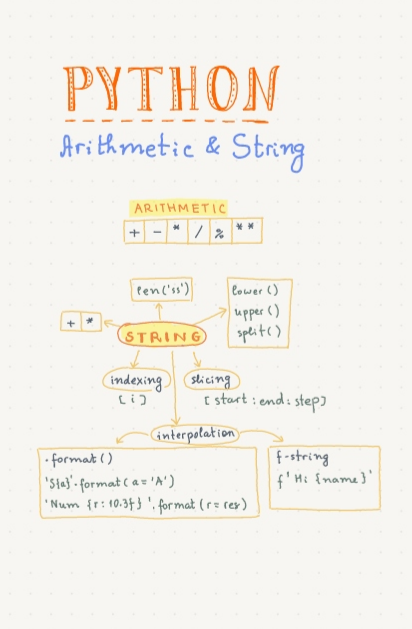 PYTHON
Arithmetic & String
ARITHMETIC
+ - * / % **
len('ss')
lower()
upper()
split()
+ *
STRING
indexing
[i]
slicing
[start:end:step]
interpolation
.format()
'S{a}'.format(a='A')
'Num {r:10.3f}'.format(r=res)
f-string
f'Hi {name}'